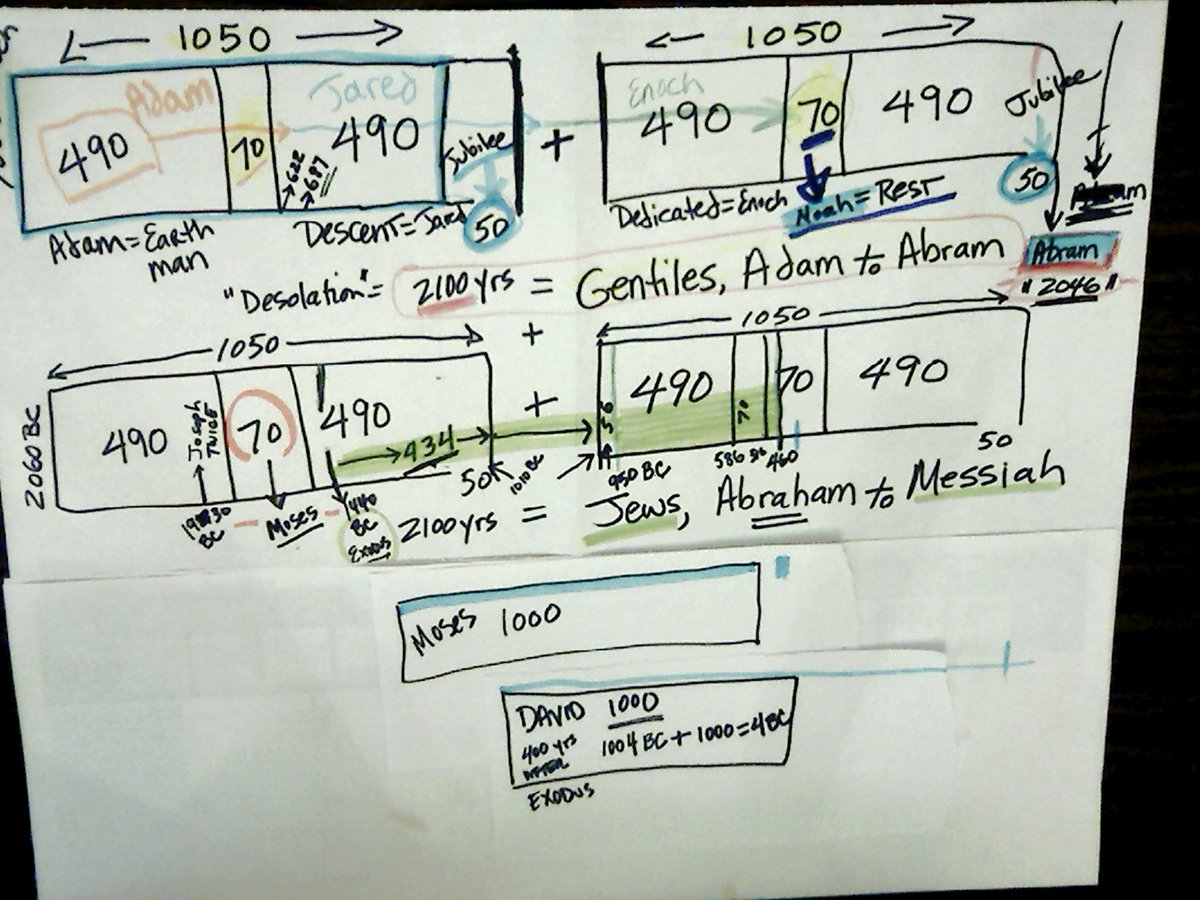 ← 1050 →
← 1050 →
Adam
490
70
Jared
490
622
687
Jubilee
50
+
Enoch
490
70
490
Jubilee
50
Adam = Earth man
Descent = Jared
Dedicated = Enoch
Noah = Rest
Abram
"2046"
"Desolation" = 2100 yrs = Gentiles, Adam to Abram
+
1050
1050
2060 BC
490
Joseph
TWICE
70
490
434
50
1010 BC
+
56
490
70
70
490
50
Moses
1440
BC
EXODUS
950 BC
586
460
2100 yrs = Jews, Abraham to Messiah
Moses 1000
DAVID 1000
400 yrs
AFTER
EXODUS
1004 BC + 1000 = 4 BC